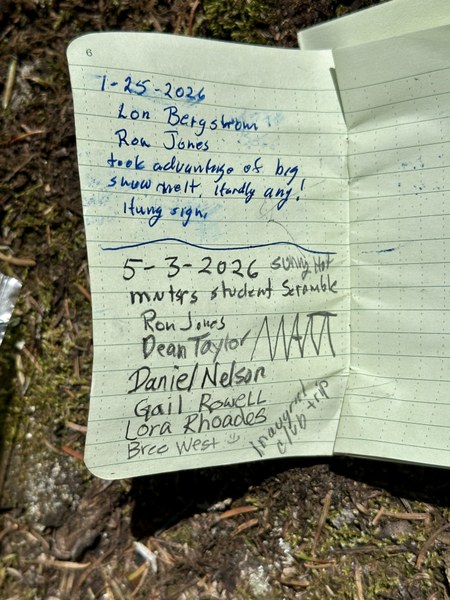 6
1-25-2026
Lon Bergstrom
Ron Jones
took advantage of big
snow melt, Hardly any!
Hung sign.
5-3-2026 sunny Hot
mntrs student Scramble
Ron Jones
Dean Taylor MATT
Daniel Nelson
Gail Rowell
Lora Rhoades
Bree West
Inaugural
club trip